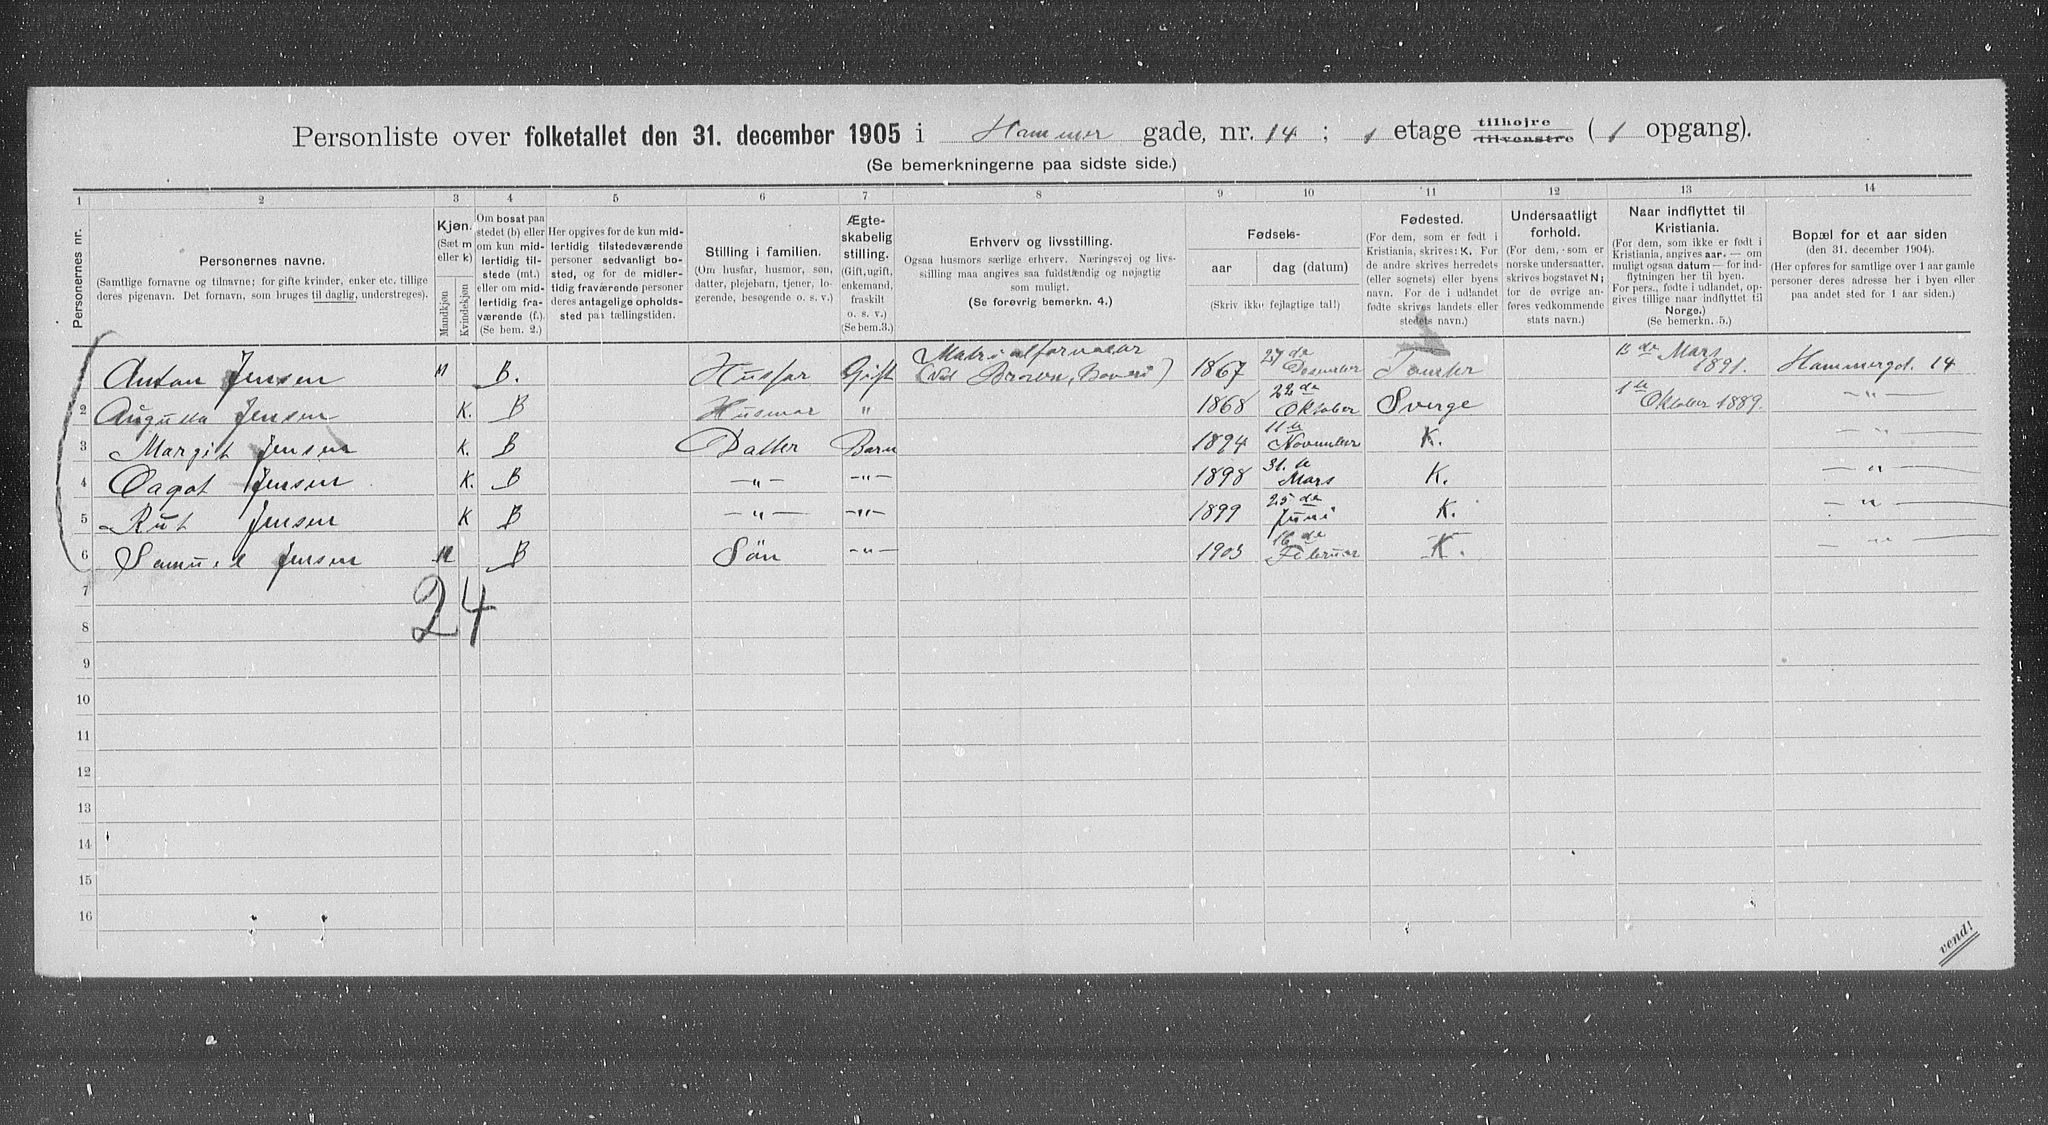 Personliste over folketallet den 31. december 1905 i Hammer gade, nr. 14 ; 1 etage tilhøjre tilvenstre ( 1 opgang).
(Se bemerkningerne paa sidste side.)
1 2 3 4 5 6 7 8 9 10 11 12 13 14
Personernes nr.
Personernes navne.
(Samtlige fornavne og tilnavne; for gifte kvinder, enker etc. tillige deres pigenavn. Det fornavn, som bruges til daglig, understreges).
Kjøn.
(Sæt m eller k)
Mandkjøn
Kvindekjøn
Om bosat paa stedet (b) eller om kun midlertidig tilstede (mt.) eller om midlertidig fraværende (f.). (Se bem. 2.)
Her opgives for de kun midlertidig tilstedeværende personer sedvanligt bosted, og for de midlertidig fraværende personer deres antagelige opholdssted paa tællingstiden.
Stilling i familien.
(Om husfar, husmor, søn, datter, plejebarn, tjener, logerende, besøgende o. s. v.)
Ægteskabelig stilling.
(Gift, ugift, enkemand, fraskilt o. s. v.) (Se bem. 3.)
Erhverv og livsstilling.
Ogsaa husmors særlige erhverv. Næringsvej og livsstilling maa angives saa fuldstændig og nøjagtig som muligt.
(Se forøvrig bemerkn. 4.)
Fødsels-
aar
dag (datum)
(Skriv ikke fejlagtige tal!)
Fødested.
(For dem, som er født i Kristiania, skrives: K. For de andre skrives herredets (eller sognets) eller byens navn. For de i udlandet fødte skrives landets eller stedets navn.)
Undersaatligt forhold.
(For dem, som er norske undersaatter, skrives bogstavet N; for de øvrige anføres vedkommende stats navn.)
Naar indflyttet til Kristiania.
(For dem, som ikke er født i Kristiania, angives aar. — om muligt ogsaa datum — for indflytningen her til byen. For pers., fødte i udlandet, opgives tillige naar indflyttet til Norge.) (Se bemerkn. 5.)
Bopæl for et aar siden
(den 31. december 1904).
(Her opføres for samtlige over 1 aar gamle personer deres adresse her i byen eller paa andet sted for 1 aar siden.)
Anton Jensen M B. Husfar Gift (ved Brown, Boveri) 1867 27de Desember 1891. Hammergd. 14
2 Augusta Jensen K. B Husmor " 1868 22de Oktober Sverge 1te Oktober 1889. — " —
3 Margit Jensen K. B Datter Barn 1894 11te November K. — " —
4 Dagot Jensen K. B — " — — " — 1898 31.te Mars K. — " —
5 Rut Jensen K B — " — — " — 1899 25de Juni K. — " —
6 Samuel Jensen M B Søn — " — 1903 16de Februar K. — " —
24
7
8
9
10
11
12
13
14
15
16
vend!